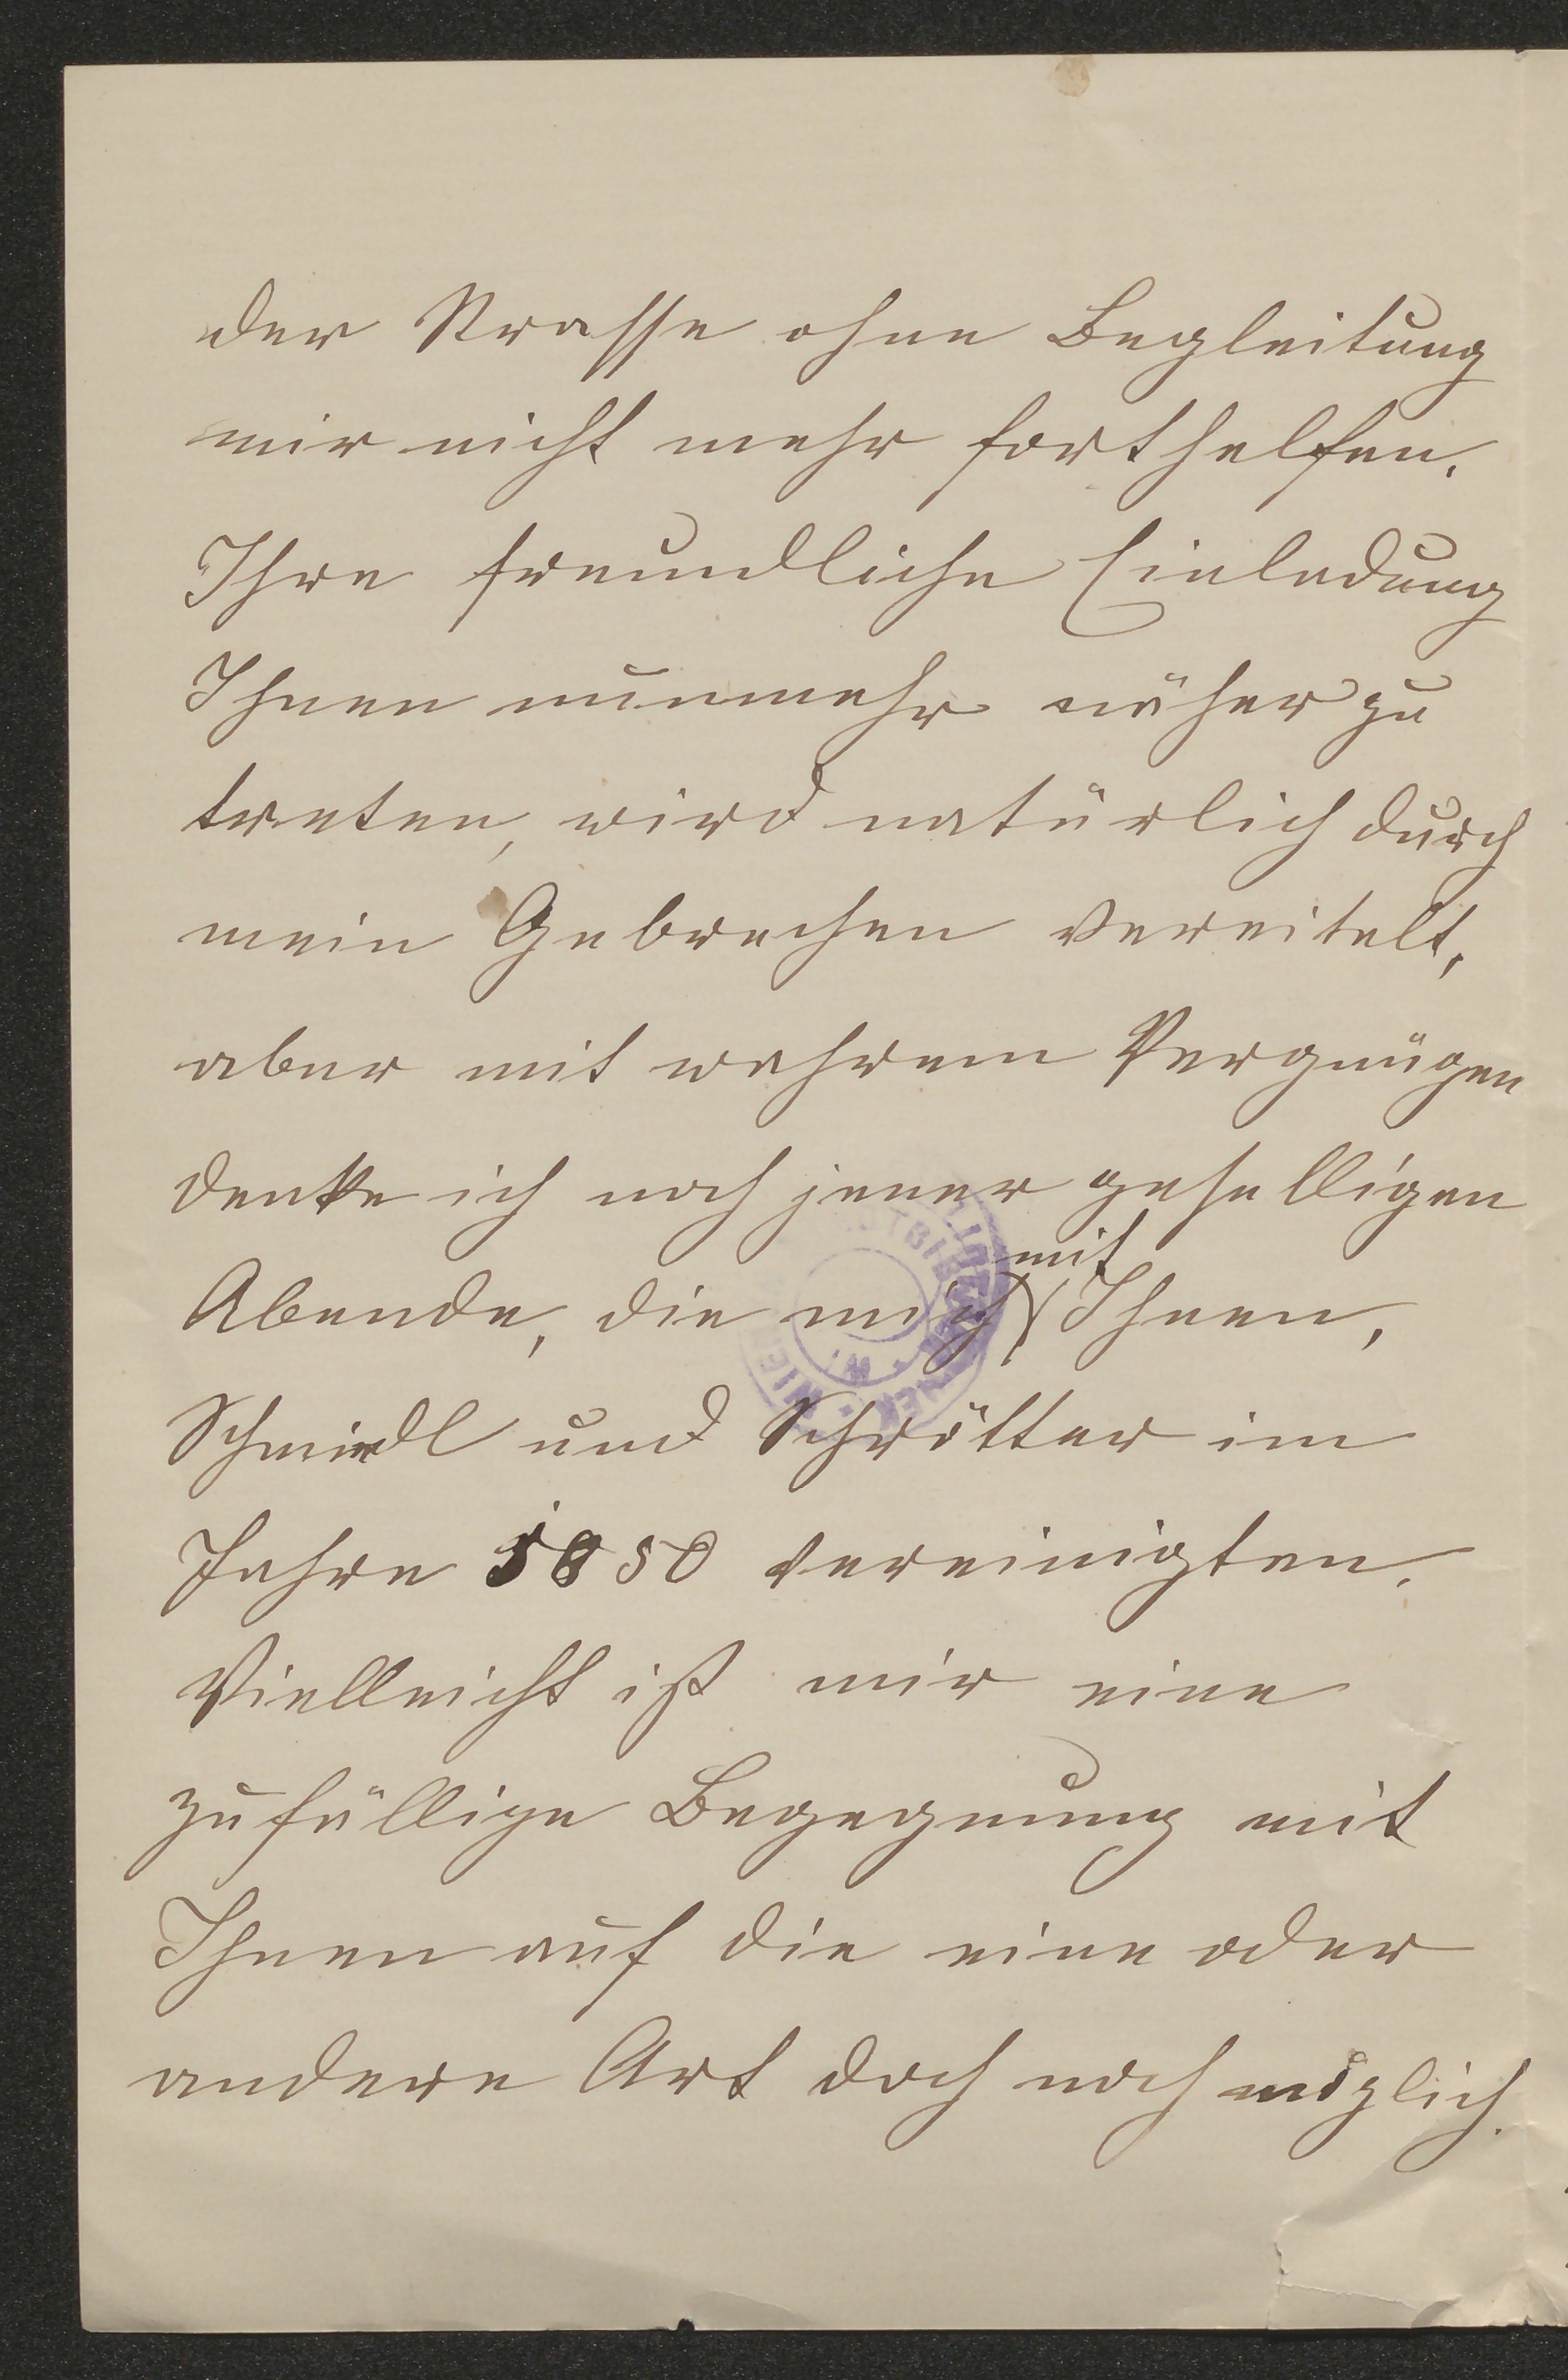 der Strasse ohne Begleitung
mir nicht mehr forthelfen.
Ihre freundliche Einladung
Ihnen nunmehr näher zu
treten, wird natürlich durch
mein Gebrechen vereitelt,
aber mit wahrem Vergnügen
denke ich noch jener geselligen
mit
Abende, die mich Ihnen,
Schmidl und Schrötter im
Jahre 1850 vereinigten.
Vielleicht ist mir eine
zufällige Begegnung mit
Ihnen auf die eine oder
andere Art doch noch möglich.